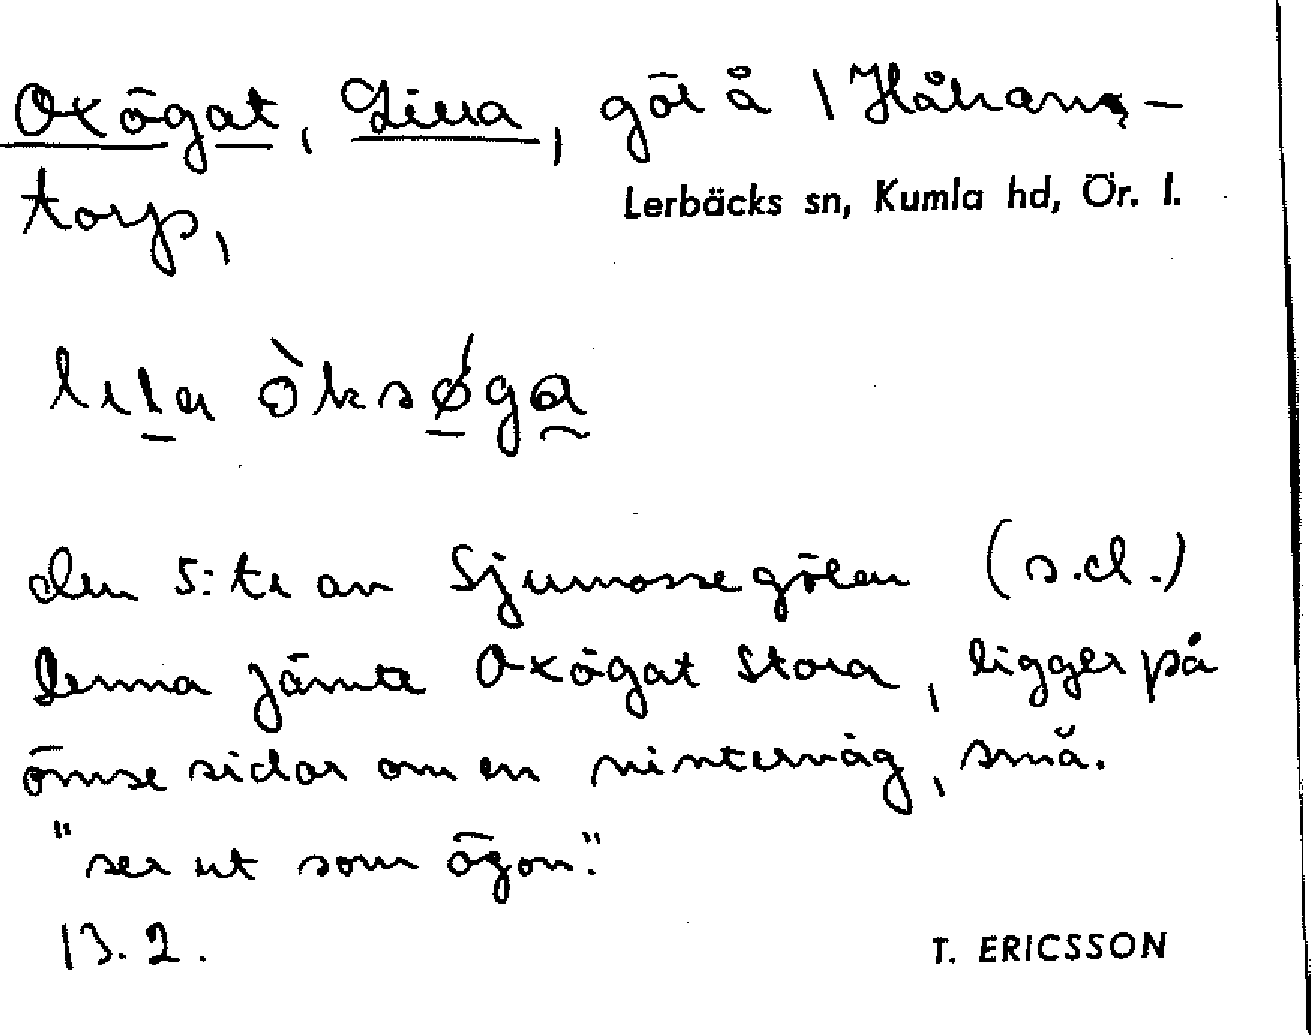 Oxögat, Lilla, göl å 1 Håkans-
torp, Lerbäcks sn, Kumla hd, Ör. l.
lila òksǿga
den 5:te av Sjumossegölar (s.d.)
Denna jämte Oxögat Stora, ligger på
ömse sidor om en vinterväg, små.
"ser ut som ögon."
13.2. T. ERICSSON